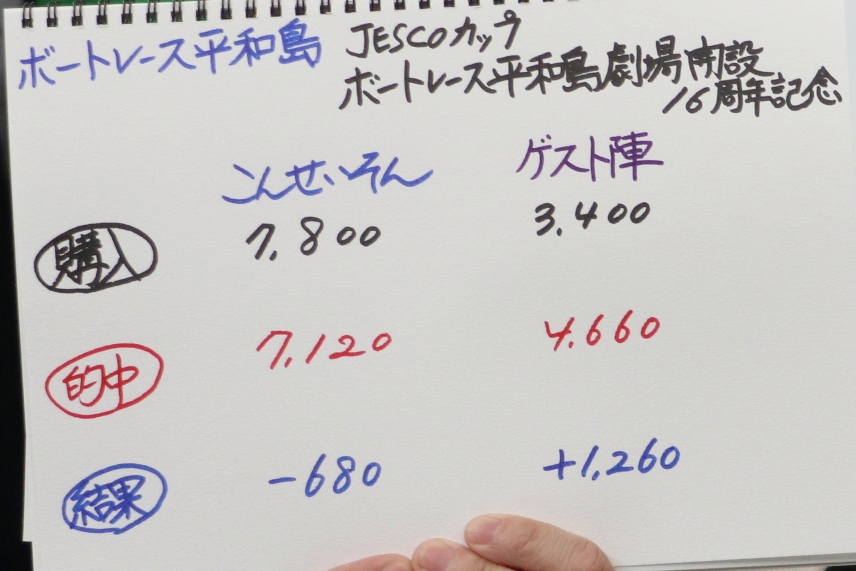 ボートレース平和島 JESCOカップ
ボートレース平和島劇場開設
16周年記念
こんせいそん ゲスト陣
購入 7,800 3,400
的中 7,120 4,660
結果 -680 +1,260